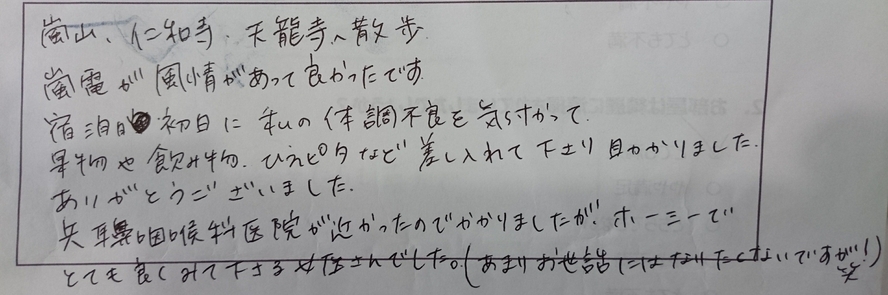 嵐山、仁和寺、天龍寺へ散歩
嵐電が風情があって良かったです
宿泊初日に私の体調不良を気づかって
果物や飲み物、ひえピタなど差し入れて下さり助かりました。
ありがとうございました。
耳鼻咽喉科医院が近かったのでかかりましたが、ホーミーで
とても良くみて下さるお医者さんでした。(あまりお世話にはなりたくないですが!)笑